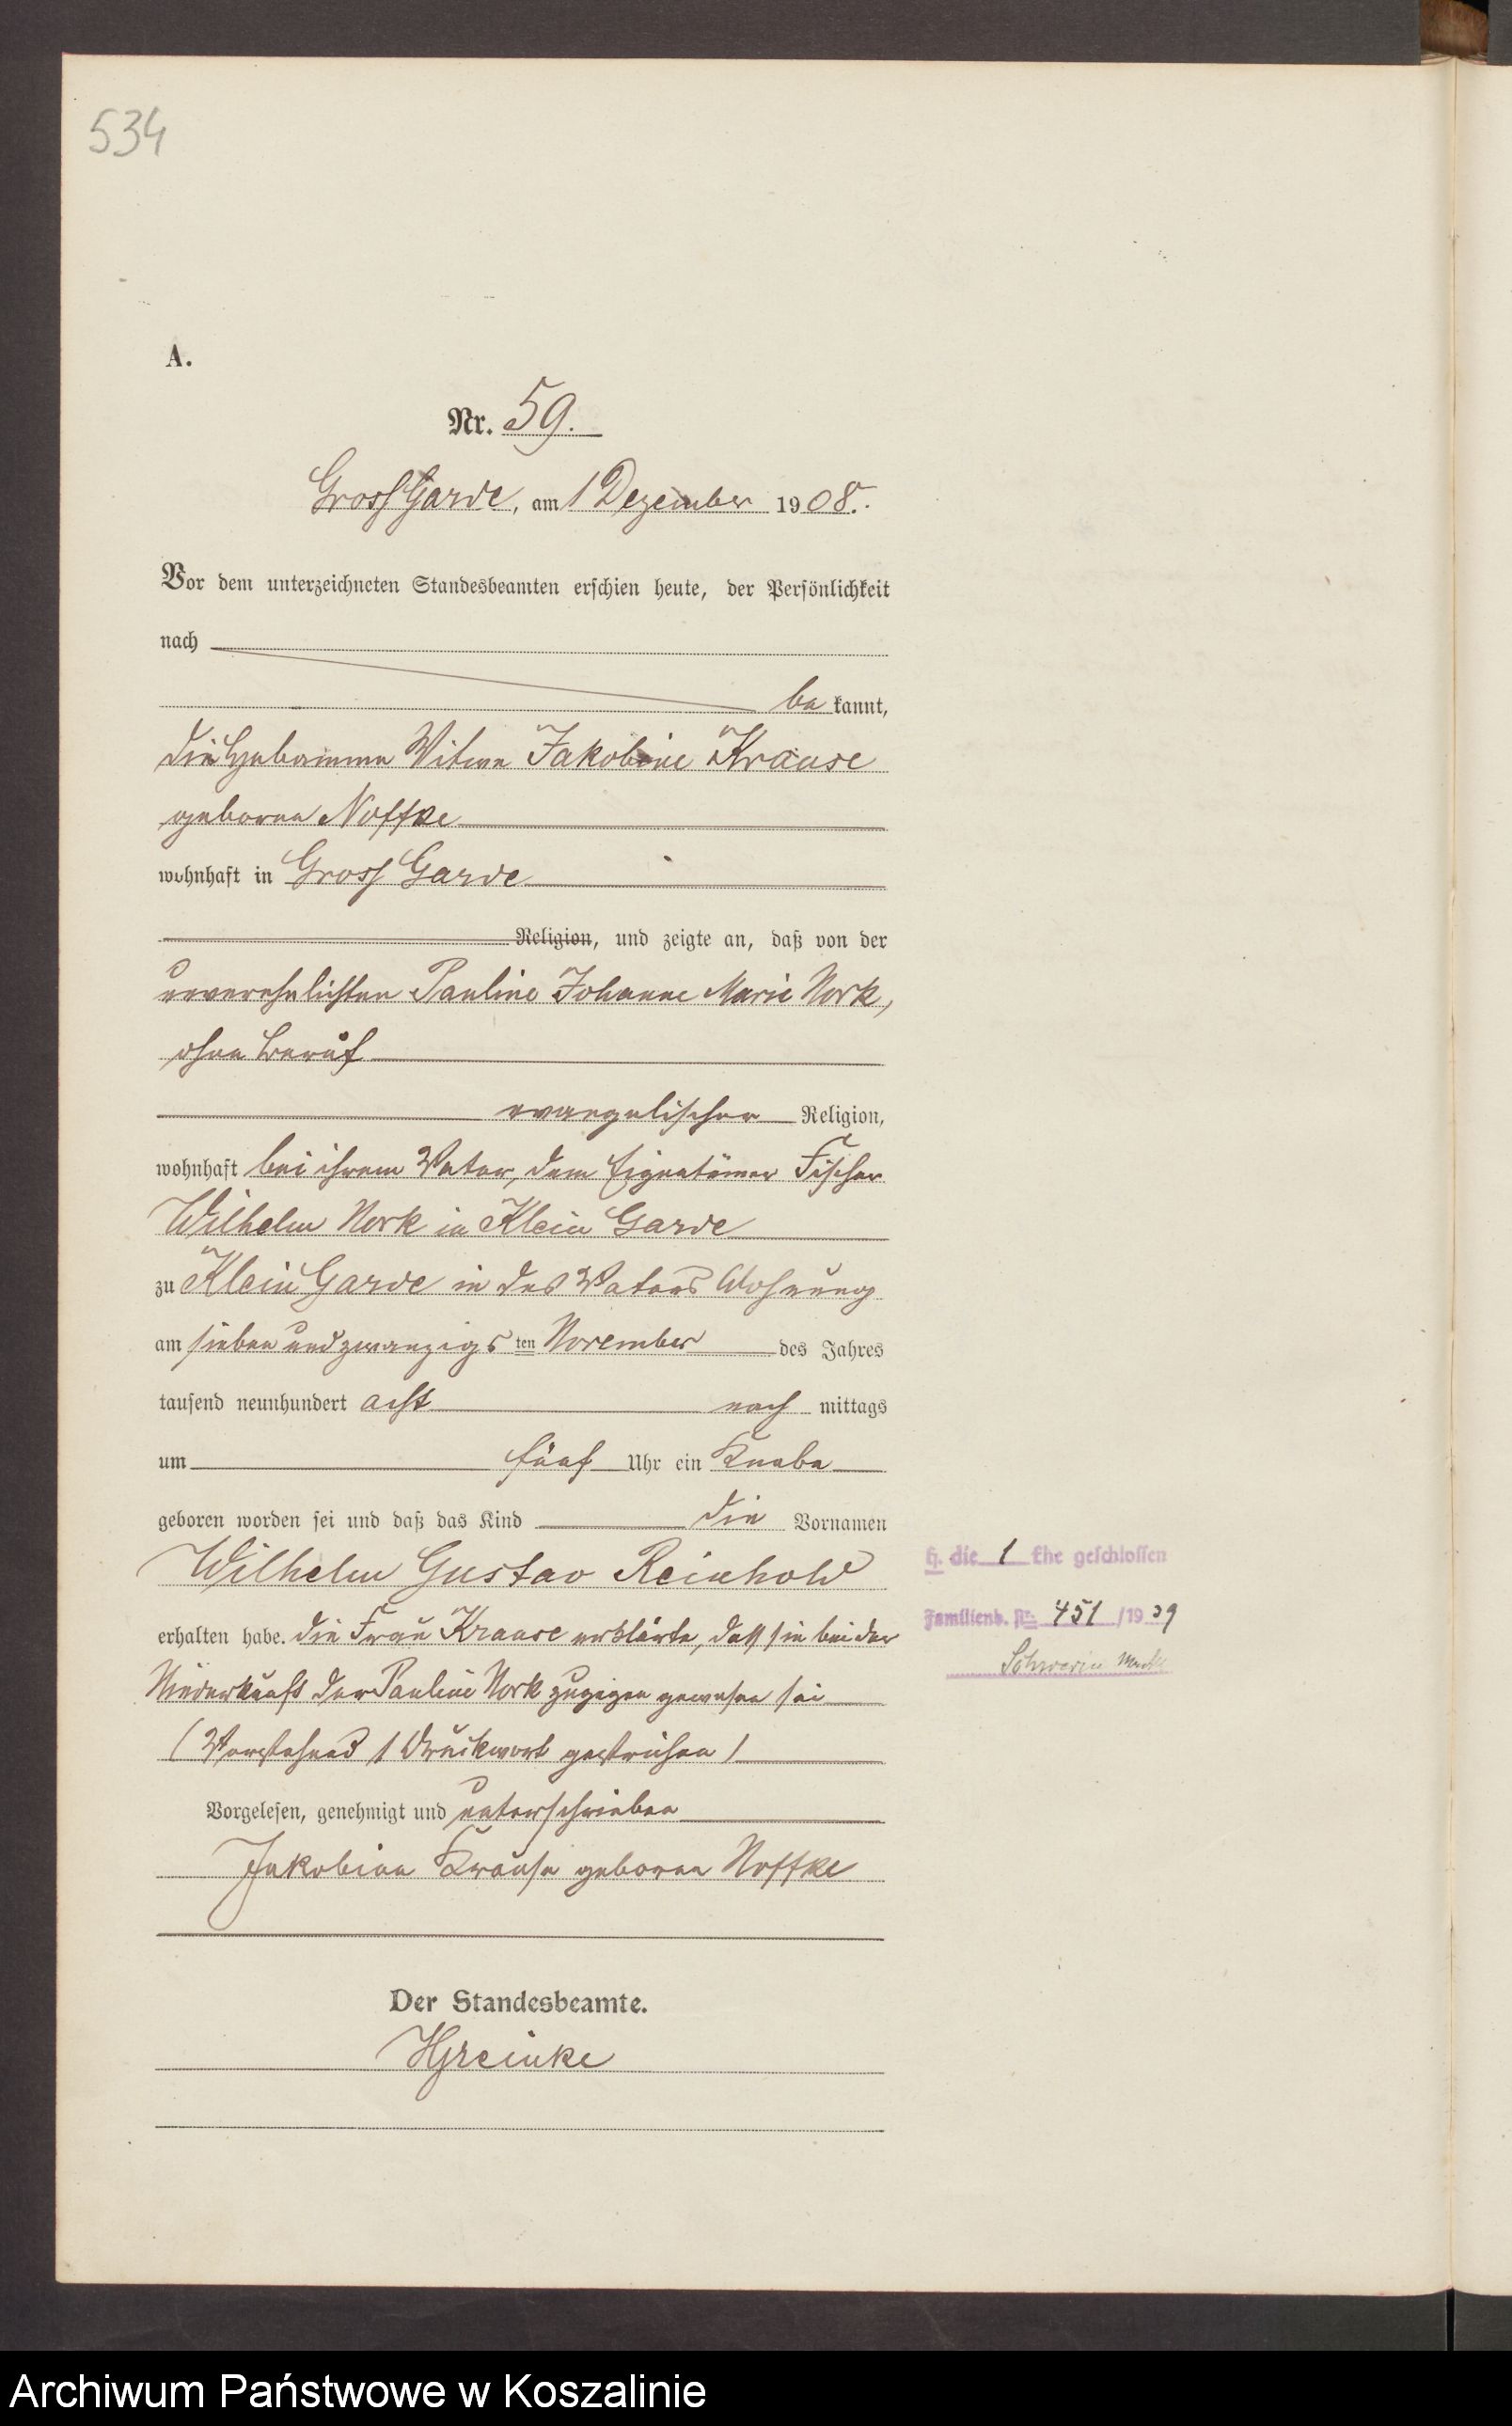 534
A.
Nr. 59.
Gross Garde, am 1 Dezember 1908.
Vor dem unterzeichneten Standesbeamten erschien heute, der Persönlichkeit
nach
bekannt,
die Hebamme Witwe Jakobine Krause
geborne Noffke
wohnhaft in Gross Garde
Religion, und zeigte an, daß von der
unverehelichten Pauline Johanne Marie Nork,
ohne Beruf
evangelischer Religion,
wohnhaft bei ihrem Vater, dem Eigentümer Fischer
Wilhelm Nork in Klein Garde
zu Klein Garde in des Vaters Wohnung
am siebenundzwanzigsten November des Jahres
tausend neunhundert acht nachmittags
um fünf Uhr ein Knabe
geboren worden sei und daß das Kind die Vornamen
Wilhelm Gustav Reinhold
erhalten habe. Die Frau Krause erklärte, dass sie bei der
Niederkunft der Pauline Nork zugegen gewesen sei
(Vorstehend 1 Druckwort gestrichen)
Vorgelesen, genehmigt und unterschrieben
Jakobine Krause geborne Noffke
Der Standesbeamte.
HGreinke
H. die 1 Ehe geschlossen
Familienb. Nr. 451/1939
Schwerin Meckl
Archiwum Państwowe w Koszalinie